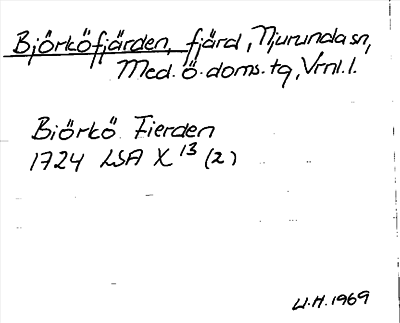 Björköfjärden, fjärd, Njurunda sn,
Med. ö. doms. tg, Vrnl. l.
Biörkö Fierden
1724 LSA X 13 (2)
W.H. 1969